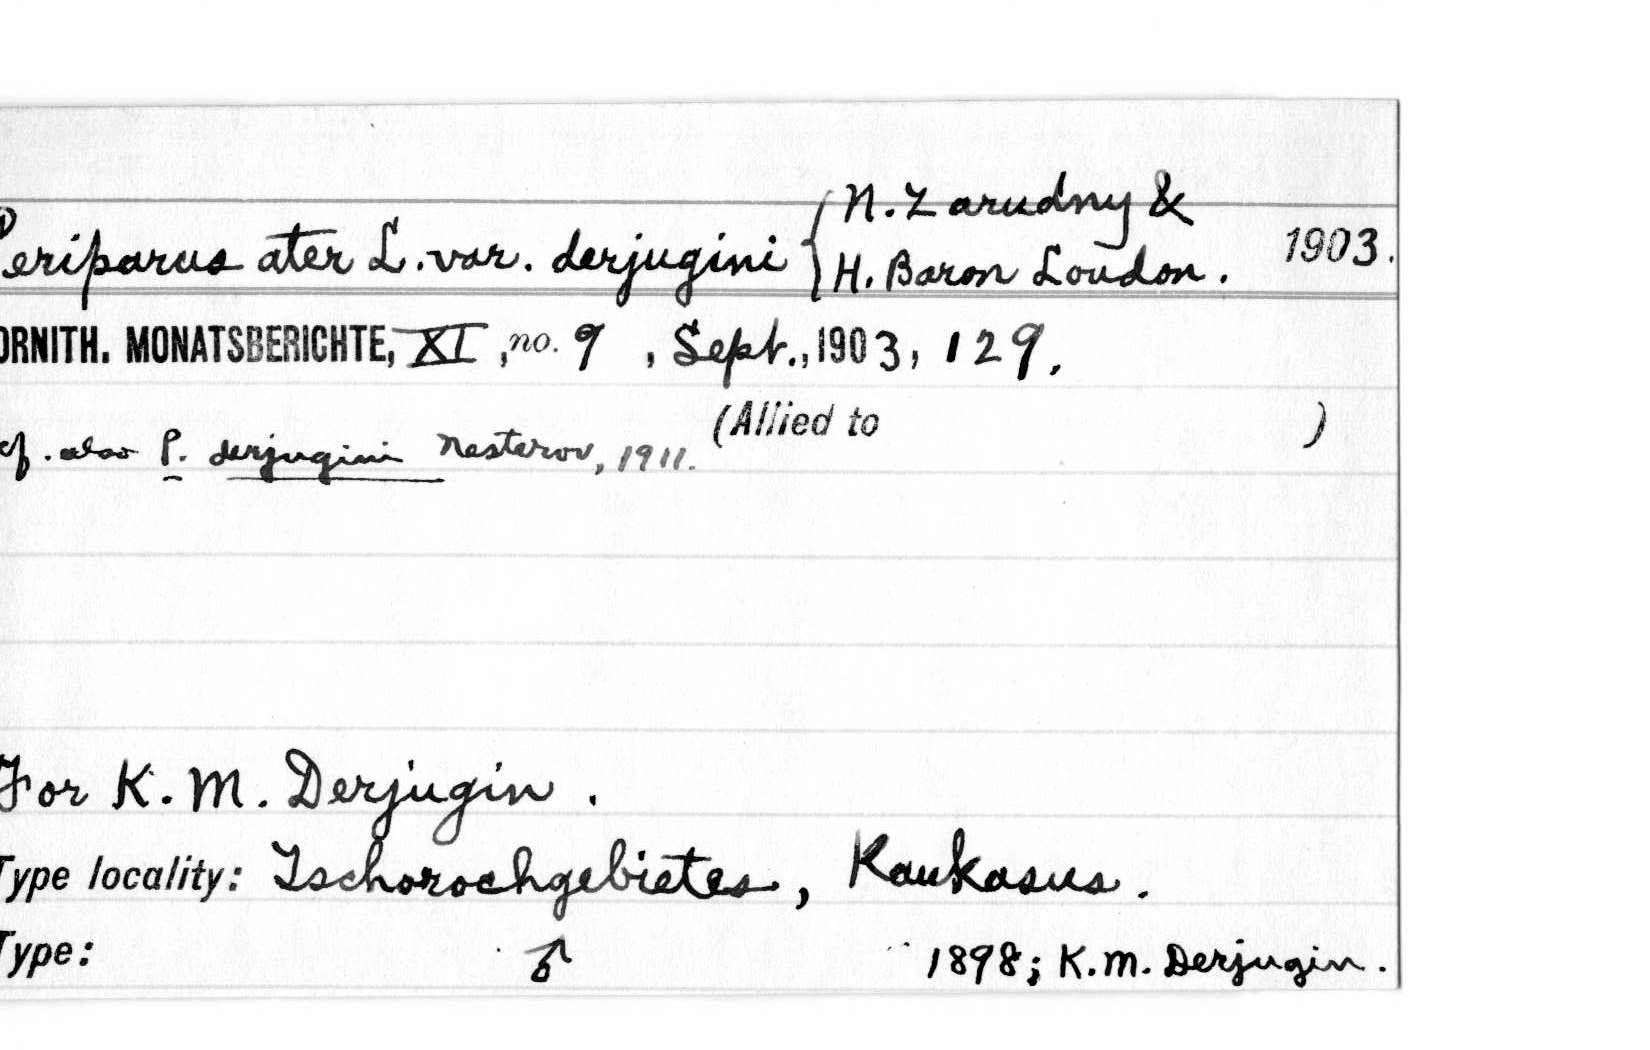 Periparus ater L. var. derjugini { N. Zarudny & H. Baron Loudon. 1903.
ORNITH. MONATSBERICHTE, XI, no. 9, Sept., 1903, 129.
(Allied to )
cf. also P. derjugini Nesterov, 1911.
For K. M. Derjugin.
Type locality: Tschorochgebietes, Kaukasus.
Type: ♂ 1898; K. M. Derjugin.